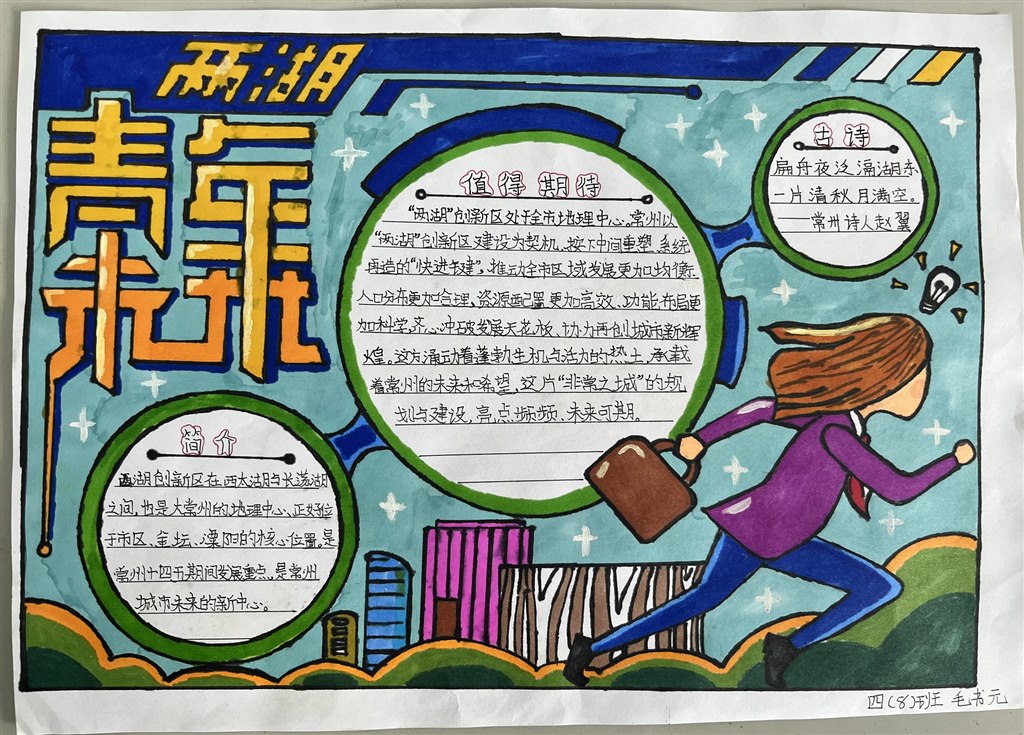 两湖
青年
未来
值得期待
“两湖”创新区处于全市地理中心。常州以
“两湖”创新区建设为契机、按下中间重塑、系统
再造的“快进键”，推动全市区域发展更加均衡、
人口分布更加合理、资源配置更加高效、功能布局更
加科学，齐心冲破发展天花板、协力再创城市新辉
煌。这方涌动着蓬勃生机与活力的热土，承载
着常州的未来和希望，这片“非常之城”的规
划与建设，亮点频频、未来可期。
古诗
扁舟夜泛滆湖东
一片清秋月满空。
——常州诗人赵翼
简介
两湖创新区在西太湖与长荡湖
之间，也是大常州的地理中心、正好位
于市区、金坛、溧阳的核心位置。是
常州十四五期间发展重点，是常州
城市未来的新中心。
四(8)班 毛书元